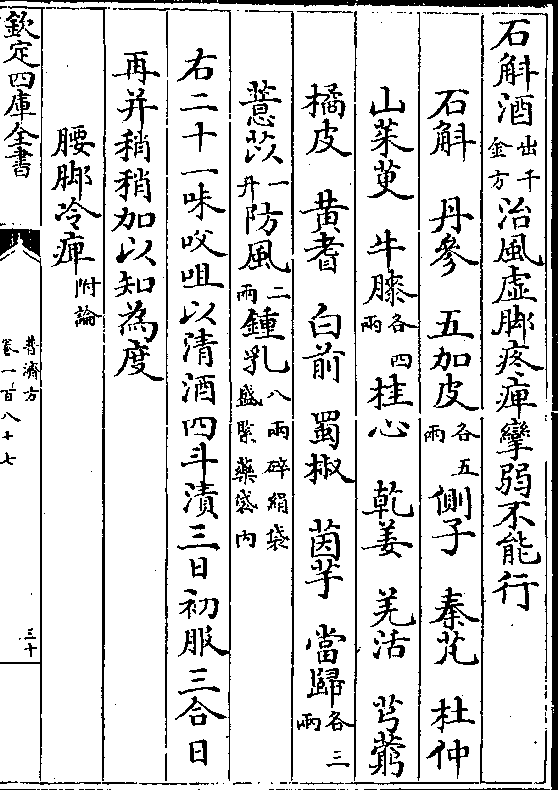 石斛酒出千金方治風虚脚疼痺攣弱不能行
石斛　丹參　五加皮各五兩側子　秦艽　杜仲
山茱萸　牛膝各四兩桂心　乾姜　羌活　芎藭
橘皮　黄耆　白前　蜀椒　茵芋　當歸各三兩
薏苡一升防風二兩鍾乳八兩碎絹袋盛緊藥袋内
右二十一味㕮咀以清酒四斗漬三日初服三合日
再并稍稍加以知為度
腰脚冷痺附論
欽定四庫全書
普濟方
卷一百八十七
三十